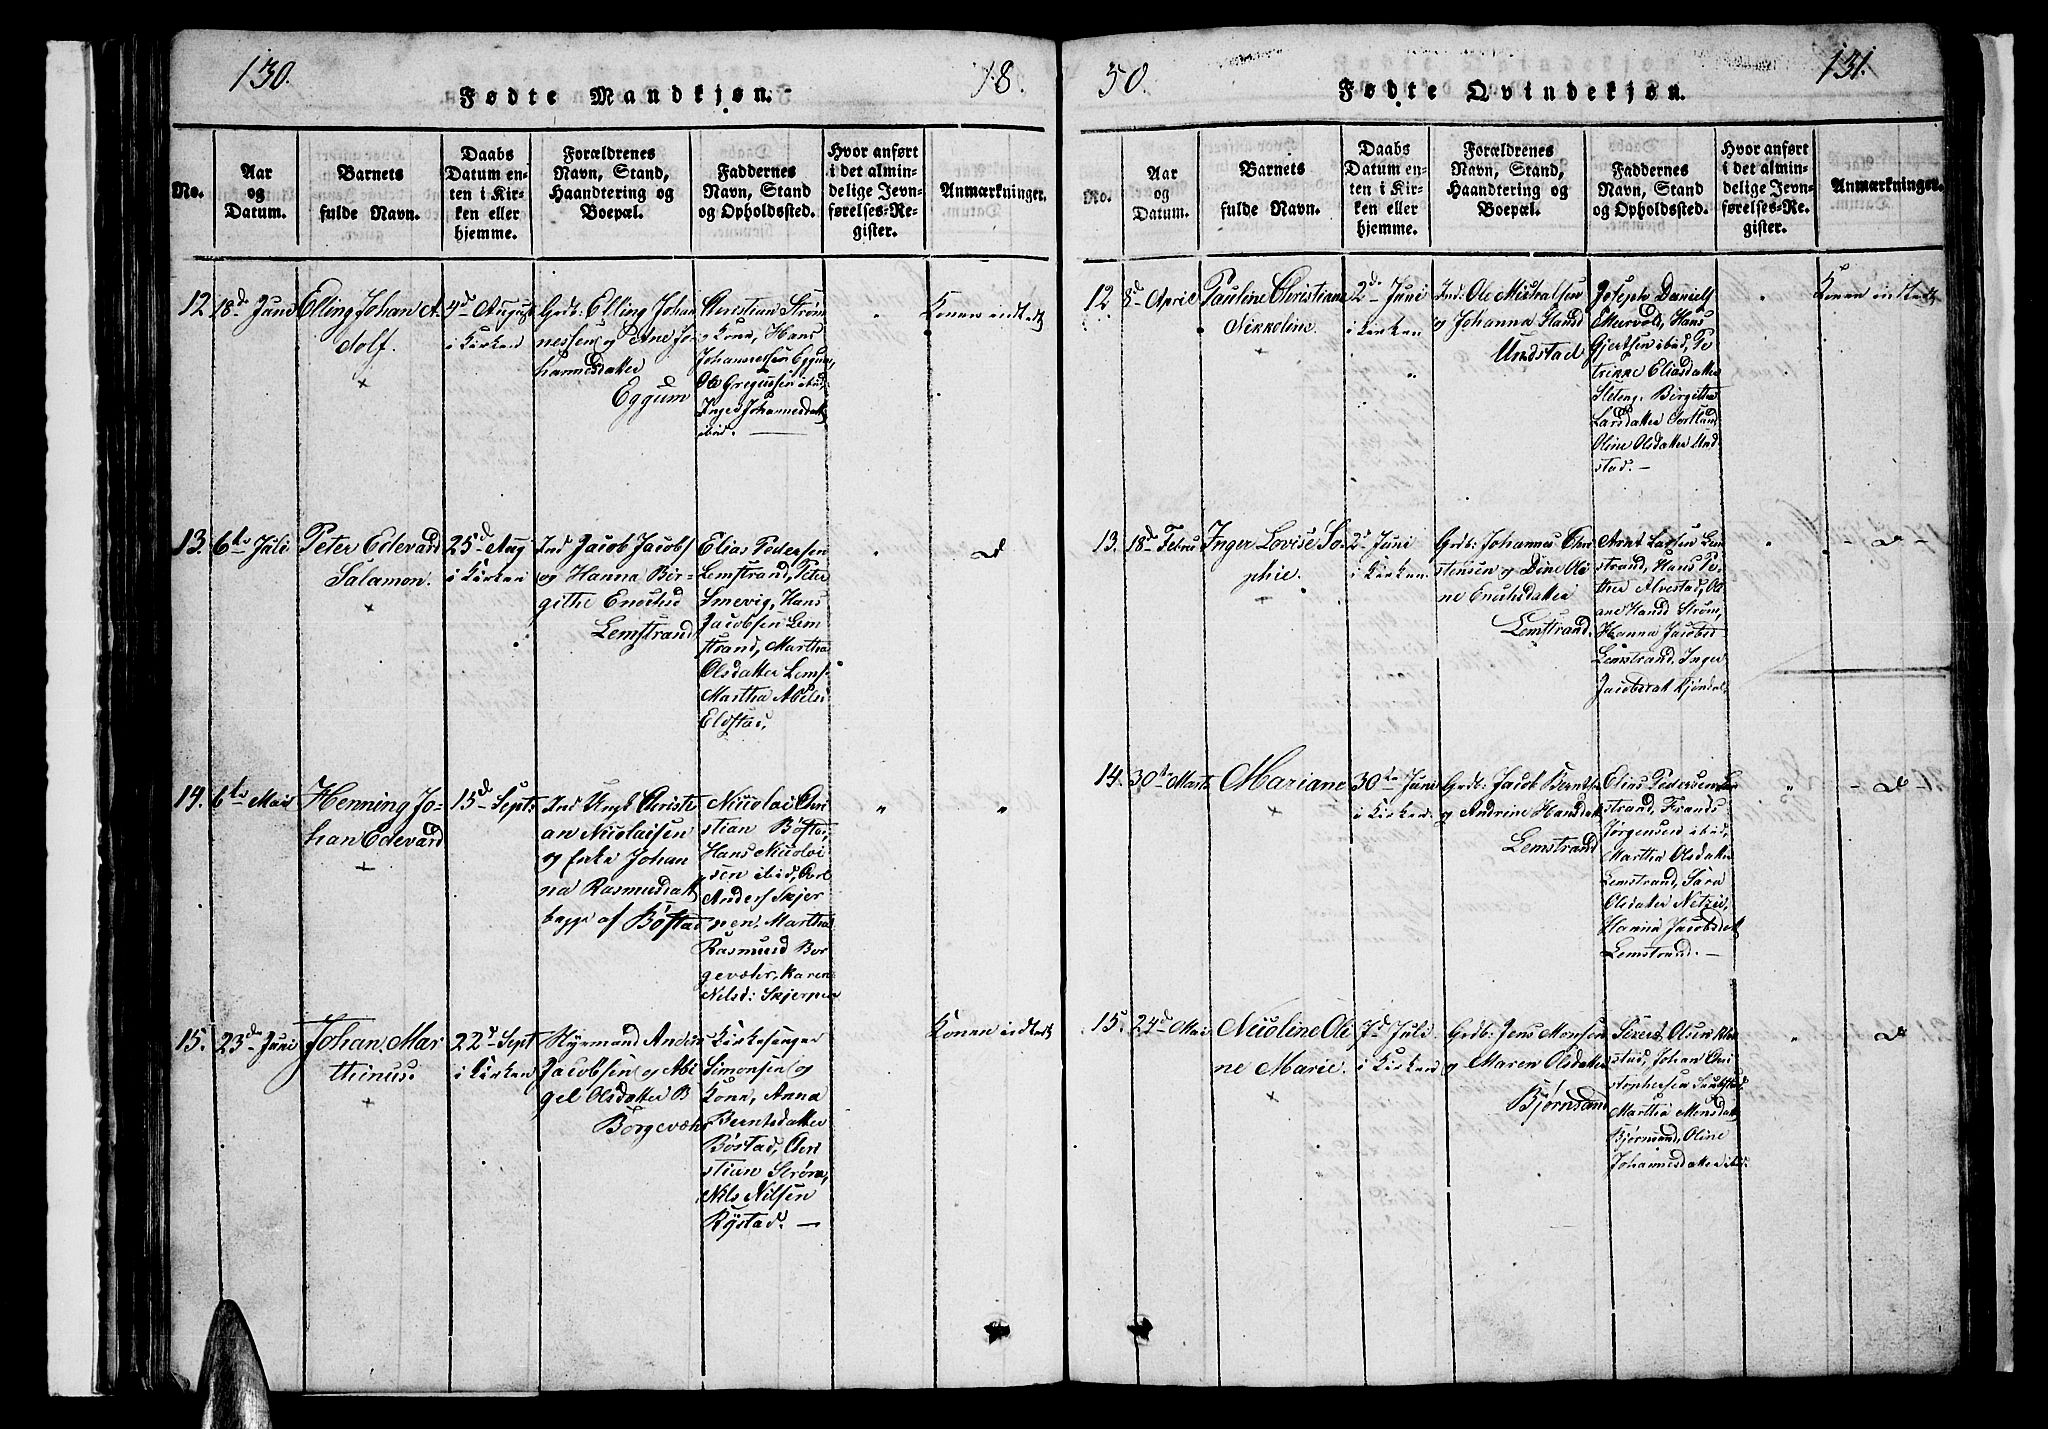 130.
18.
Fødte Mandkjøn.
No.
Aar
og
Datum.
Barnets
fulde Navn.
Daabs
Datum en-
ten i Kir-
ken eller
hjemme.
Forældrenes
Navn, Stand,
Haandtering og
Boepæl.
Faddernes
Navn, Stand
og Opholdssted.
Hvor anført
i det almin-
delige Jevn-
førelses-Re-
gister.
Anmærkninger.
12
18d Juni
Elling Johan A-
dolf.
4d August
i Kirken
Grdb: Elling Johan
nessen og Ane Jo-
hannesdatter
Eggum
Christian Strøm
og Kone, Hans
Johannessen Eggum,
Ole Gregussen ibid,
Inger Johannesdatt
ibid.
Konen indledt
13.
6te Juli
Peter Edevard
Salamon.
25d Aug
i Kirken
Ind Jacob Jacobs
og Hanna Bir-
githe Enochsd
Lemstrand
Elias Pedersen
Lemstrand, Peter
Smevig, Hans
Jacobsen Lem
strand, Martha
Olsdatter Lemst
Martha Abelsd
Eldstad,
d
14.
6te Mai
Henning Jo-
han Edevard
15d Septb
Ind Ungk Christi
an Nicolaisen
og Johan
na Rasmusdatt
begge af Bøstad
Nicolai Chri
stian Bøstad,
Hans Nicolai
sen ibid,
Anders Skjer
pen, Martha
Rasmusd Bor
gevæhr, Karen
Nilsd: Skjerpen
15.
23de Juni
Johan Mar
thinus.
22d Sept
i Kirken
Nyrmand Anders
Jacobsen og Abi
gel Olsdatter B
Borgevæhr
Kirkesanger
Simonsen og
Kone, Anna
Berntsdatter
Bøstad, Chri
stian Strøm,
Nils Nilsen
Rystad.
Konen indledt
50.
131.
Fødte Qvindekjøn.
No.
Aar
og
Datum.
Barnets
fulde Navn.
Daabs
Datum en-
ten i Kir-
ken eller
hjemme.
Forældrenes
Navn, Stand,
Haandtering og
Boepæl.
Faddernes
Navn, Stand
og Opholdssted.
Hvor anført
i det almin-
delige Jevn-
førelses-Re-
gister.
Anmærkninger.
12
8d April
Pauline Christiane
Nikkoline.
2d Juni
i Kirken
Ind: Ole Michalsen
og Johanna Hansd
Undstad
Joseph Daniels
Mærvold, Hans
Gjertsen ibid, Pe
trikke Eliasdatter
Steteng, Birgitha
Larsdatter Tortlund
Oline Olsdatter Und
stad.
Konen indledt
13.
18d Febru
Inger Lovise So-
phie.
2d Juni
i Kirken.
Grdb: Johannes Chri
stensen og Dine Oli
ne Enochsdatter
Lemstrand.
Arnt Larsen Lem
strand, Hans Pe-
ther Alvestad, Ol
ane Hansd Strøm,
Hanna Jacobsd
Lemstrand, Inger
Jacobsdat Kjøndal,
- d -
14.
30te Marts
Mariane
30te Juni
i Kirken
Grdb: Jacob Bernts
og Andrine Hansdatt
Lemstrand
Elias Pedersen Lem
strand, Frands
Jørgensen ibid,
Martha Olsdatter
Lemstrand, Sara
Olsdatter
Hanna Jacobsdat
Lemstrand.
- d
15
24d Mai
Nicoline Oli
ne Marie.
7d Juli
i Kirken
Grdb: Jens Monsen
og Maren Olsdatter
Bjørnsand
Sivert Olsen
stad, Johan Chri
stophersen Sandstad,
Martha Monsdatt
Bjørnsand, Oline
Johannesdatter ibid.
d